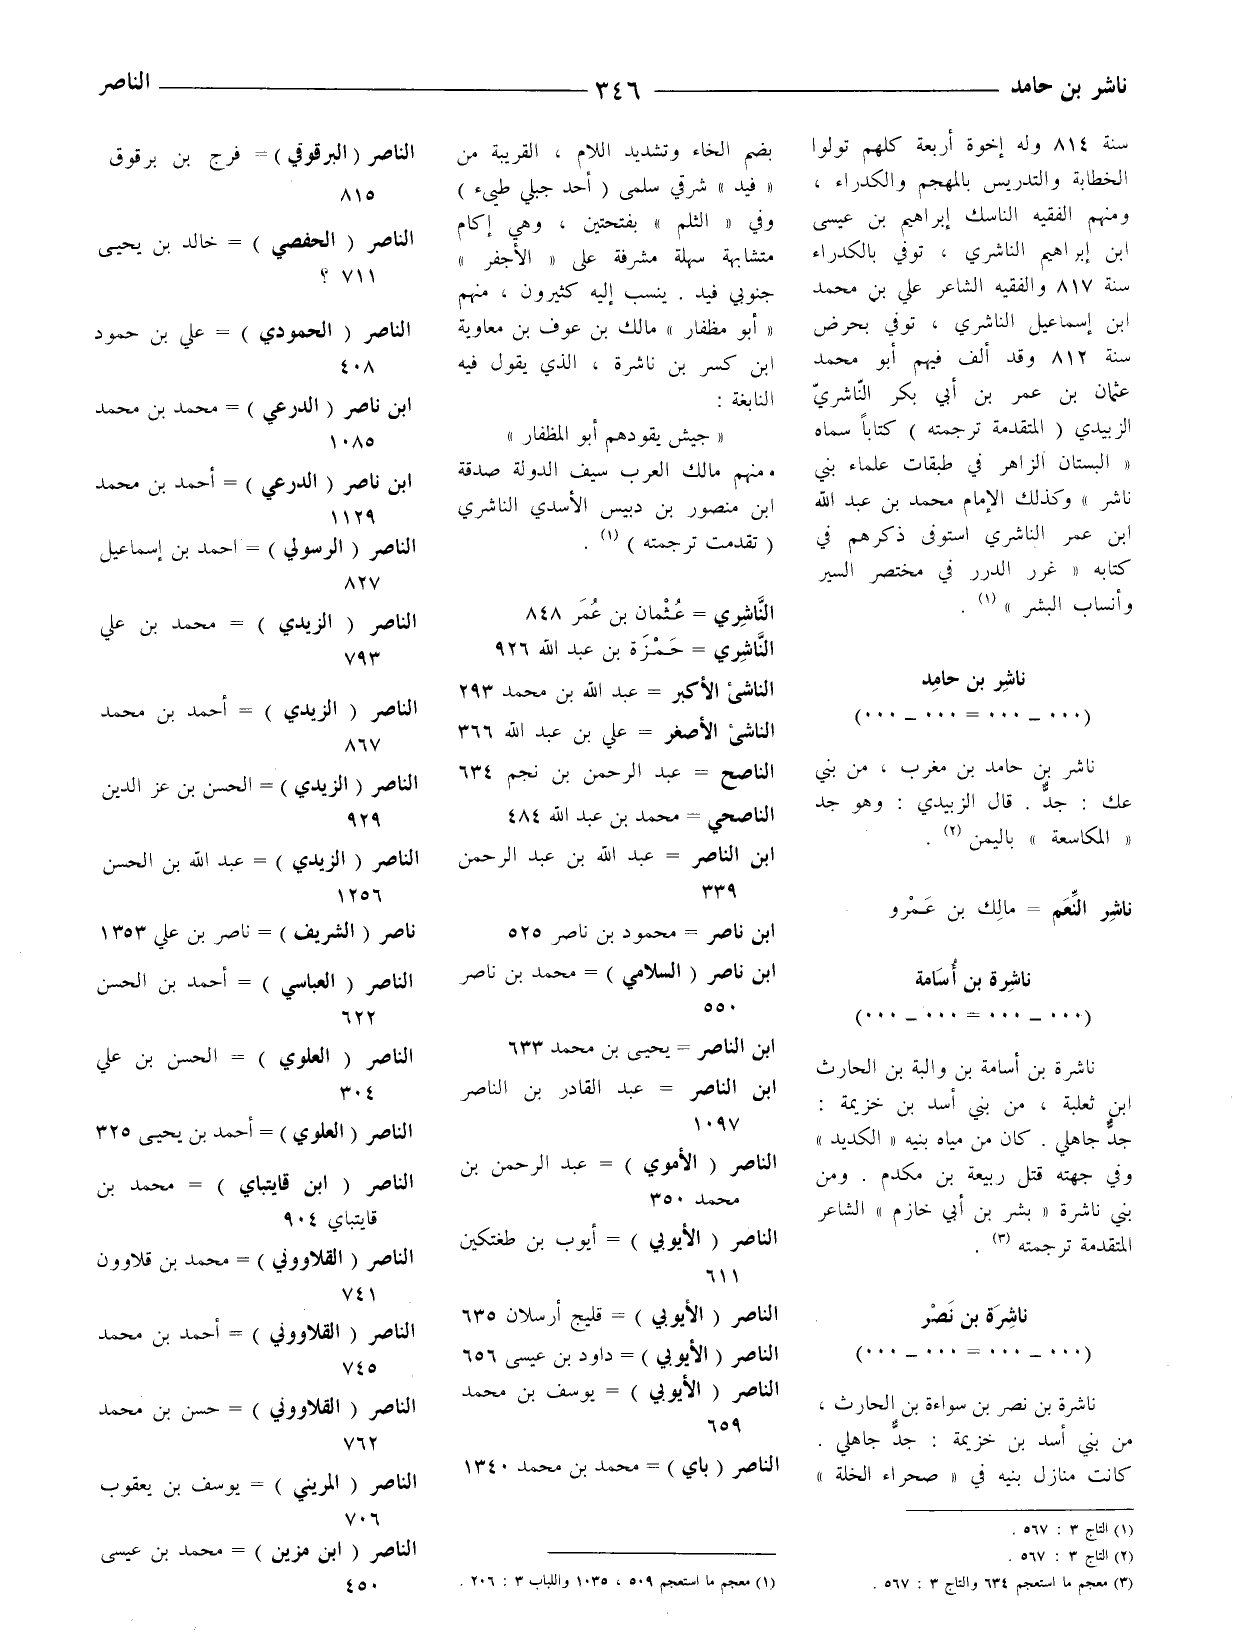 ناشر بن حامد ٣٤٦ الناصر
سنة ٨١٤ وله إخوة أربعة كلهم تولوا
الخطابة والتدريس بالمهجم والكدراء ،
ومنهم الفقيه الناسك إبراهيم بن عيسى
ابن إبراهيم الناشري ، توفي بالكدراء
سنة ٨١٧ والفقيه الشاعر علي بن محمد
ابن إسماعيل الناشري ، توفي بحرض
سنة ٨١٢ وقد ألف فيهم أبو محمد
عثمان بن عمر بن أبي بكر النّاشريّ
الزبيدي ( المتقدمة ترجمته ) كتاباً سماه
« البستان الزاهر في طبقات علماء بني
ناشر » وكذلك الإمام محمد بن عبد الله
ابن عمر الناشري استوفى ذكرهم في
كتابه « غرر الدرر في مختصر السير
وأنساب البشر » (١) .
ناشِر بن حامِد
(٠٠٠ ــ ٠٠٠ = ٠٠٠ ــ ٠٠٠)
ناشر بن حامد بن مغرب ، من بني
عك : جدٌّ . قال الزبيدي : وهو جد
« المكاسعة » باليمن (٢) .
ناشِر النِّعَم = مالِك بن عَمْرو
ناشِرة بن أُسَامة
(٠٠٠ ــ ٠٠٠ = ٠٠٠ ــ ٠٠٠)
ناشرة بن أسامة بن والبة بن الحارث
ابن ثعلبة ، من بني أسد بن خزيمة :
جدٌّ جاهلي . كان من مياه بنيه « الكديد »
وفي جهته قتل ربيعة بن مكدم . ومن
بني ناشرة « بشر بن أبي خازم » الشاعر
المتقدمة ترجمته (٣) .
ناشِرَة بن نَصْر
(٠٠٠ ــ ٠٠٠ = ٠٠٠ ــ ٠٠٠)
ناشرة بن نصر بن سواءة بن الحارث ،
من بني أسد بن خزيمة : جدٌّ جاهلي .
كانت منازل بنيه في « صحراء الخلة »
(١) التاج ٣ : ٥٦٧ .
(٢) التاج ٣ : ٥٦٧ .
(٣) معجم ما استعجم ٦٣٤ والتاج ٣ : ٥٦٧ .
بضم الخاء وتشديد اللام ، القريبة من
« فيد » شرقي سلمى ( أحد جبلي طيىء )
وفي « الثلم » بفتحتين ، وهي إكام
متشابهة سهلة مشرفة على « الأجفر »
جنوبي فيد . ينسب إليه كثيرون ، منهم
« أبو مظفار » مالك بن عوف بن معاوية
ابن كسر بن ناشرة ، الذي يقول فيه
النابغة :
« جيش يقودهم أبو المظفار »
ومنهم مالك العرب سيف الدولة صدقة
ابن منصور بن دبيس الأسدي الناشري
( تقدمت ترجمته ) (١) .
النَّاشِري = عُثْمان بن عُمَر ٨٤٨
النَّاشِري = حَمْزَة بن عبد الله ٩٢٦
الناشئ الأكبر = عبد الله بن محمد ٢٩٣
الناشئ الأصغر = علي بن عبد الله ٣٦٦
الناصح = عبد الرحمن بن نجم ٦٣٤
الناصحي = محمد بن عبد الله ٤٨٤
ابن الناصر = عبد الله بن عبد الرحمن
٣٣٩
ابن ناصر = محمود بن ناصر ٥٢٥
ابن ناصر ( السلامي ) = محمد بن ناصر
٥٥٠
ابن الناصر = يحيى بن محمد ٦٣٣
ابن الناصر = عبد القادر بن الناصر
١٠٩٧
الناصر ( الأموي ) = عبد الرحمن بن
محمد ٣٥٠
الناصر ( الأيوبي ) = أيوب بن طغتكين
٦١١
الناصر ( الأيوبي ) = قليج أرسلان ٦٣٥
الناصر ( الأيوبي ) = داود بن عيسى ٦٥٦
الناصر ( الأيوبي ) = يوسف بن محمد
٦٥٩
الناصر ( باي ) = محمد بن محمد ١٣٤٠
(١) معجم ما استعجم ٥٠٩ ، ١٠٣٥ واللباب ٣ : ٢٠٦ .
الناصر ( البرقوقي ) = فرج بن برقوق
٨١٥
الناصر ( الحفصي ) = خالد بن يحيى
٧١١ ؟
الناصر ( الحمودي ) = علي بن حمود
٤٠٨
ابن ناصر ( الدرعي ) = محمد بن محمد
١٠٨٥
ابن ناصر ( الدرعي ) = أحمد بن محمد
١١٢٩
الناصر ( الرسولي ) = احمد بن إسماعيل
٨٢٧
الناصر ( الزيدي ) = محمد بن علي
٧٩٣
الناصر ( الزيدي ) = أحمد بن محمد
٨٦٧
الناصر ( الزيدي ) = الحسن بن عز الدين
٩٢٩
الناصر ( الزيدي ) = عبد الله بن الحسن
١٢٥٦
ناصر ( الشريف ) = ناصر بن علي ١٣٥٣
الناصر ( العباسي ) = أحمد بن الحسن
٦٢٢
الناصر ( العلوي ) = الحسن بن علي
٣٠٤
الناصر ( العلوي ) = أحمد بن يحيى ٣٢٥
الناصر ( ابن قايتباي ) = محمد بن
قايتباي ٩٠٤
الناصر ( القلاووني ) = محمد بن قلاوون
٧٤١
الناصر ( القلاووني ) = أحمد بن محمد
٧٤٥
الناصر ( القلاووني ) = حسن بن محمد
٧٦٢
الناصر ( المريني ) = يوسف بن يعقوب
٧٠٦
الناصر ( ابن مزين ) = محمد بن عيسى
٤٥٠